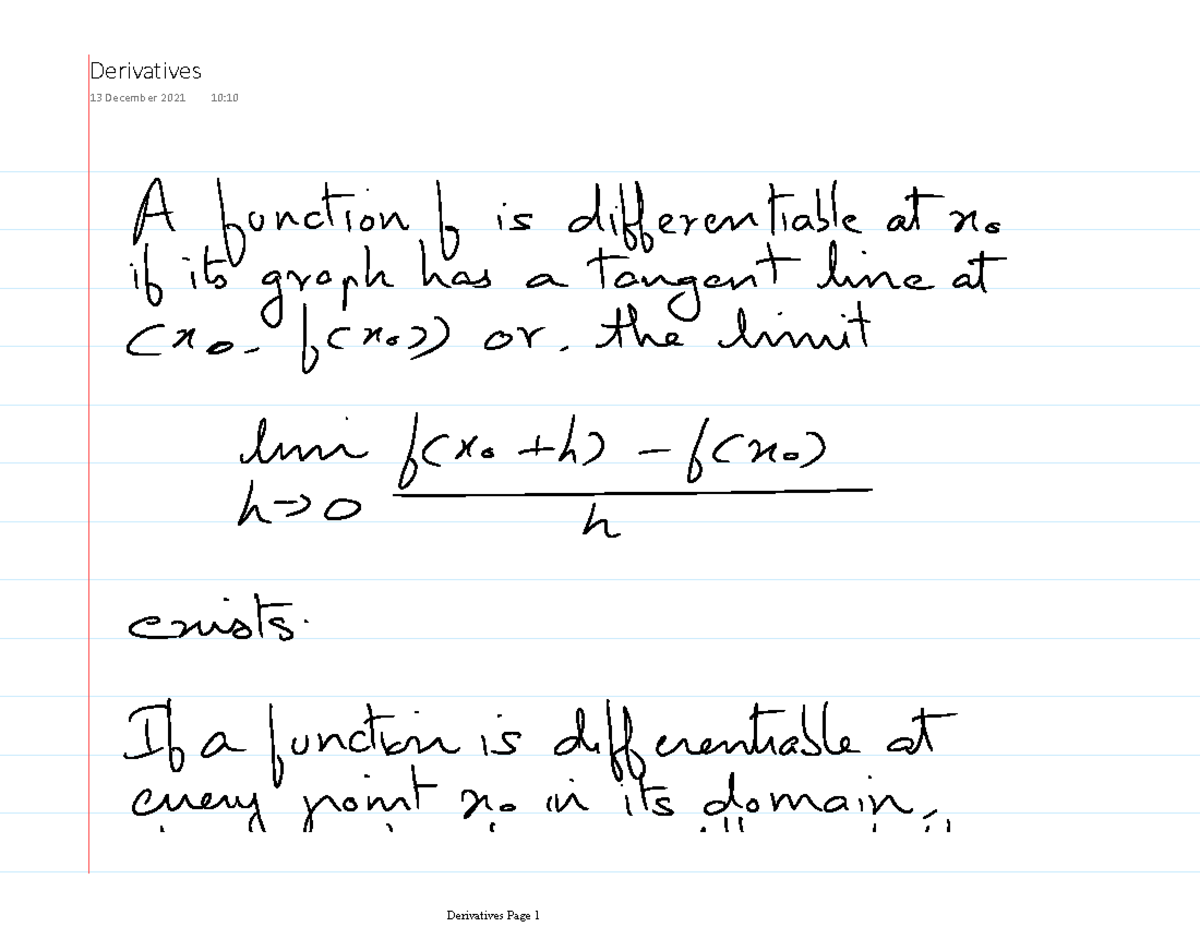 Derivatives
13 December 2021 10:10
A function f is differentiable at x₀
if its graph has a tangent line at
(x₀, f(x₀)) or, the limit
lim f(x₀ + h) - f(x₀)
h→0 h
exists.
If a function is differentiable at
every point x₀ in its domain,
Derivatives Page 1